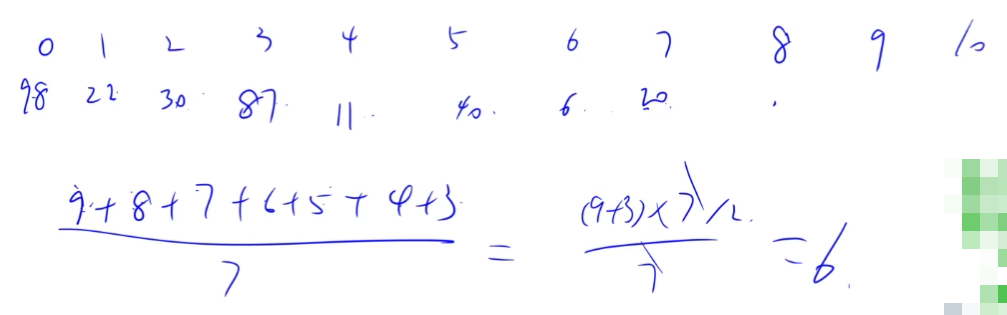 0 1 2 3 4 5 6 7 8 9 10
98 22 30 87 11 40 6 20
(9+8+7+6+5+4+3)/7 = ((9+3)×7/2)/7 = 6